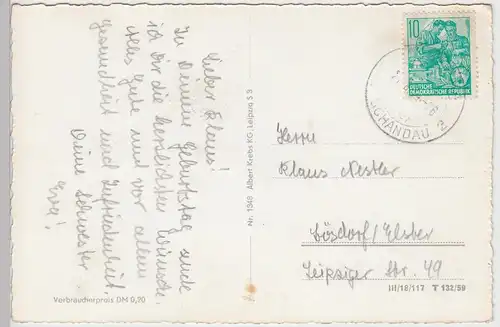 Lieber Klaus!
Zu Deinem Geburtstag sende
ich Dir die herzlichsten Wünsche.
Alles Gute und vor allem
Gesundheit und Zufriedenheit.
Deine Schwester
Eva!
Verbraucherpreis DM 0,20
Nr. 1349 Albert Krebs KG, Leipzig S 3
10
DEUTSCHE
DEMOKRATISCHE REPUBLIK
SCHANDAU 2
Herrn
Klaus Nestler
Bösdorf/Elster
Leipziger Str. 49
III/18/117 T 132/59